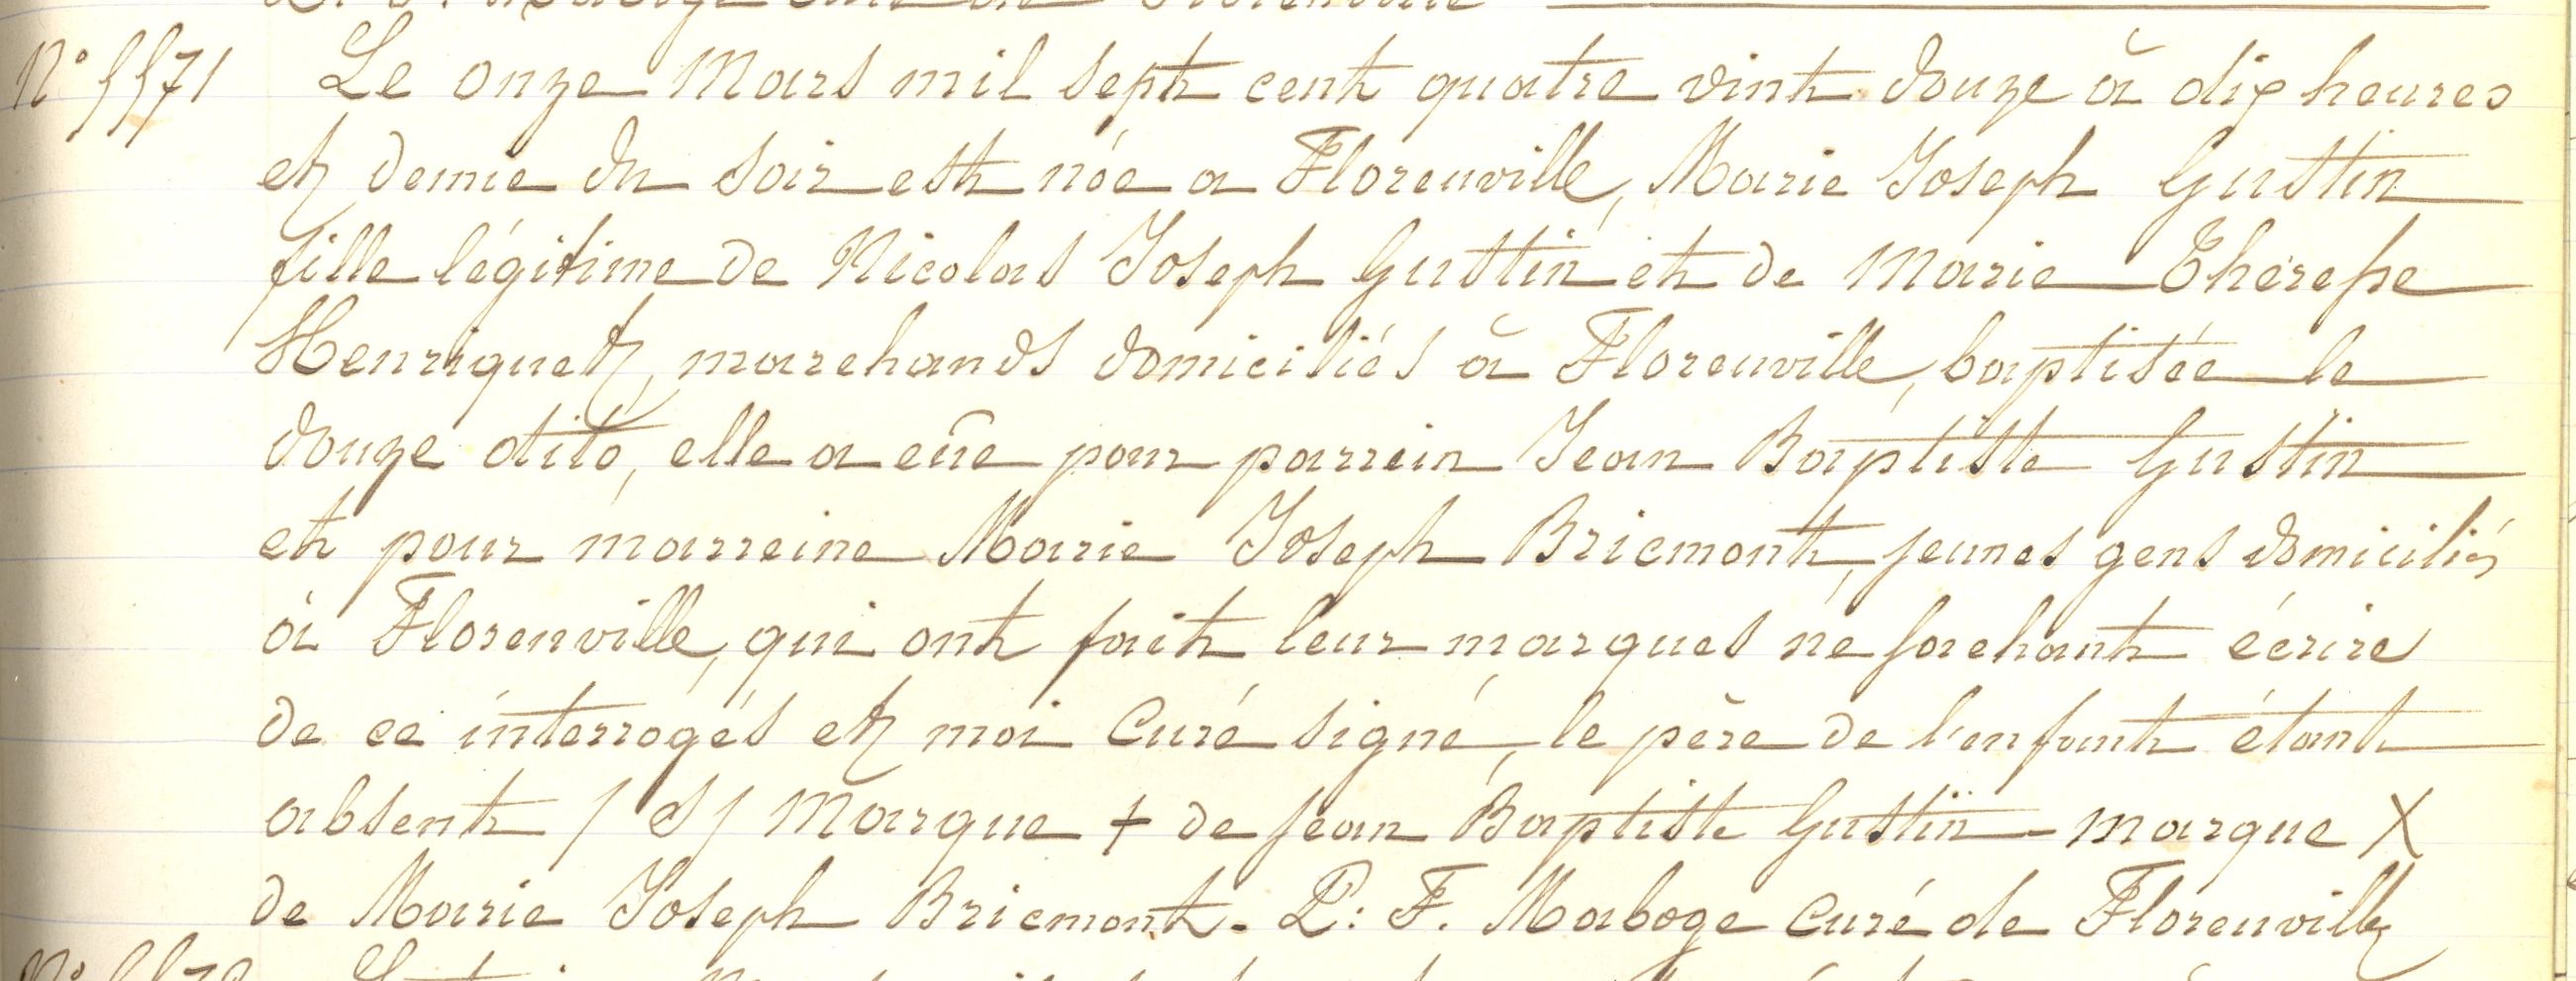 N° 5571 Le onze Mars mil sept cent quatre vint douze à dix heures
et demie du soir est née a Florenville, Marie Joseph Gustin
fille légitime de Nicolas Joseph Gustin et de Marie Theresse
Henriquet, marchands domiciliés à Florenville, baptisée le
douze dito, elle a eûe pour parrein Jean Baptiste Gustin
et pour marreine Marie Joseph Bricmont, jeunes gens domiciliés
à Florenville, qui ont fait leur marques ne sachant écrire
de ce interrogés et moi Curé signé, le père de l'enfant étant
absent / S / Marque + de Jean Baptiste Gustin - marque X
de Marie Joseph Bricmont. P: F. Maboge Curé de Florenville